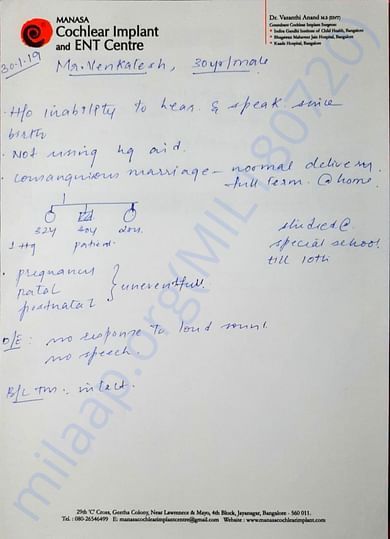 MANASA
Cochlear Implant
and ENT Centre
Dr. Vasanthi Anand M.S (ENT)
Consultant Cochlear Implant Surgeon
• Indira Gandhi Institute of Child Health, Bangalore
• Bhagawan Mahaveer Jain Hospital, Bangalore
Hospital, Bangalore
30.1.19
Mr. Venkatesh, 30yr/male
• H/o inability to hear & speak since
birth
• Not using Hg aid.
• consanguious marriage – normal delivery.
full term. @home.
32y 30y 28y
patient.
studied @
special school
till 10th
• pregnancy
natal
postnatal
} uneventfull.
O/E: no response to loud sound.
no speech.
B/L TM. intact.
milaap.org(MIL180720)
29th 'C' Cross, Geetha Colony, Near Lawrence & Mayo, 4th Block, Jayanagar, Bangalore - 560 011.
Tel. : 080-26546499 E: manasacochlearimplantcentre@gmail.com Website : www.manasacochlearimplant.com